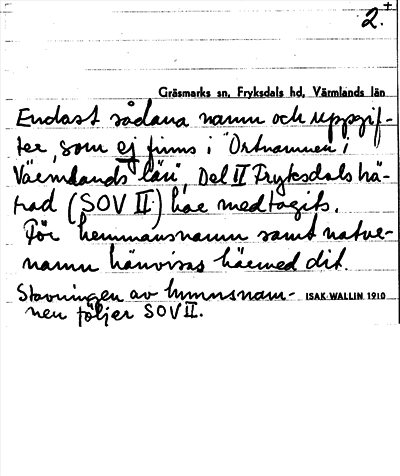 2.+
Gräsmarks sn, Fryksdals hd, Värmlands län
Endast sådana namn och uppgif-
ter, som ej finns i "Ortnamnen i
Värmlands län", Del II Fryksdals hä-
rad (SOV II) har medtagits.
För hemmansnamn samt natur-
namn hänvisas härmed dit.
Stavningen av hmnsnam- ISAK WALLIN 1910
nen följer SOV II.